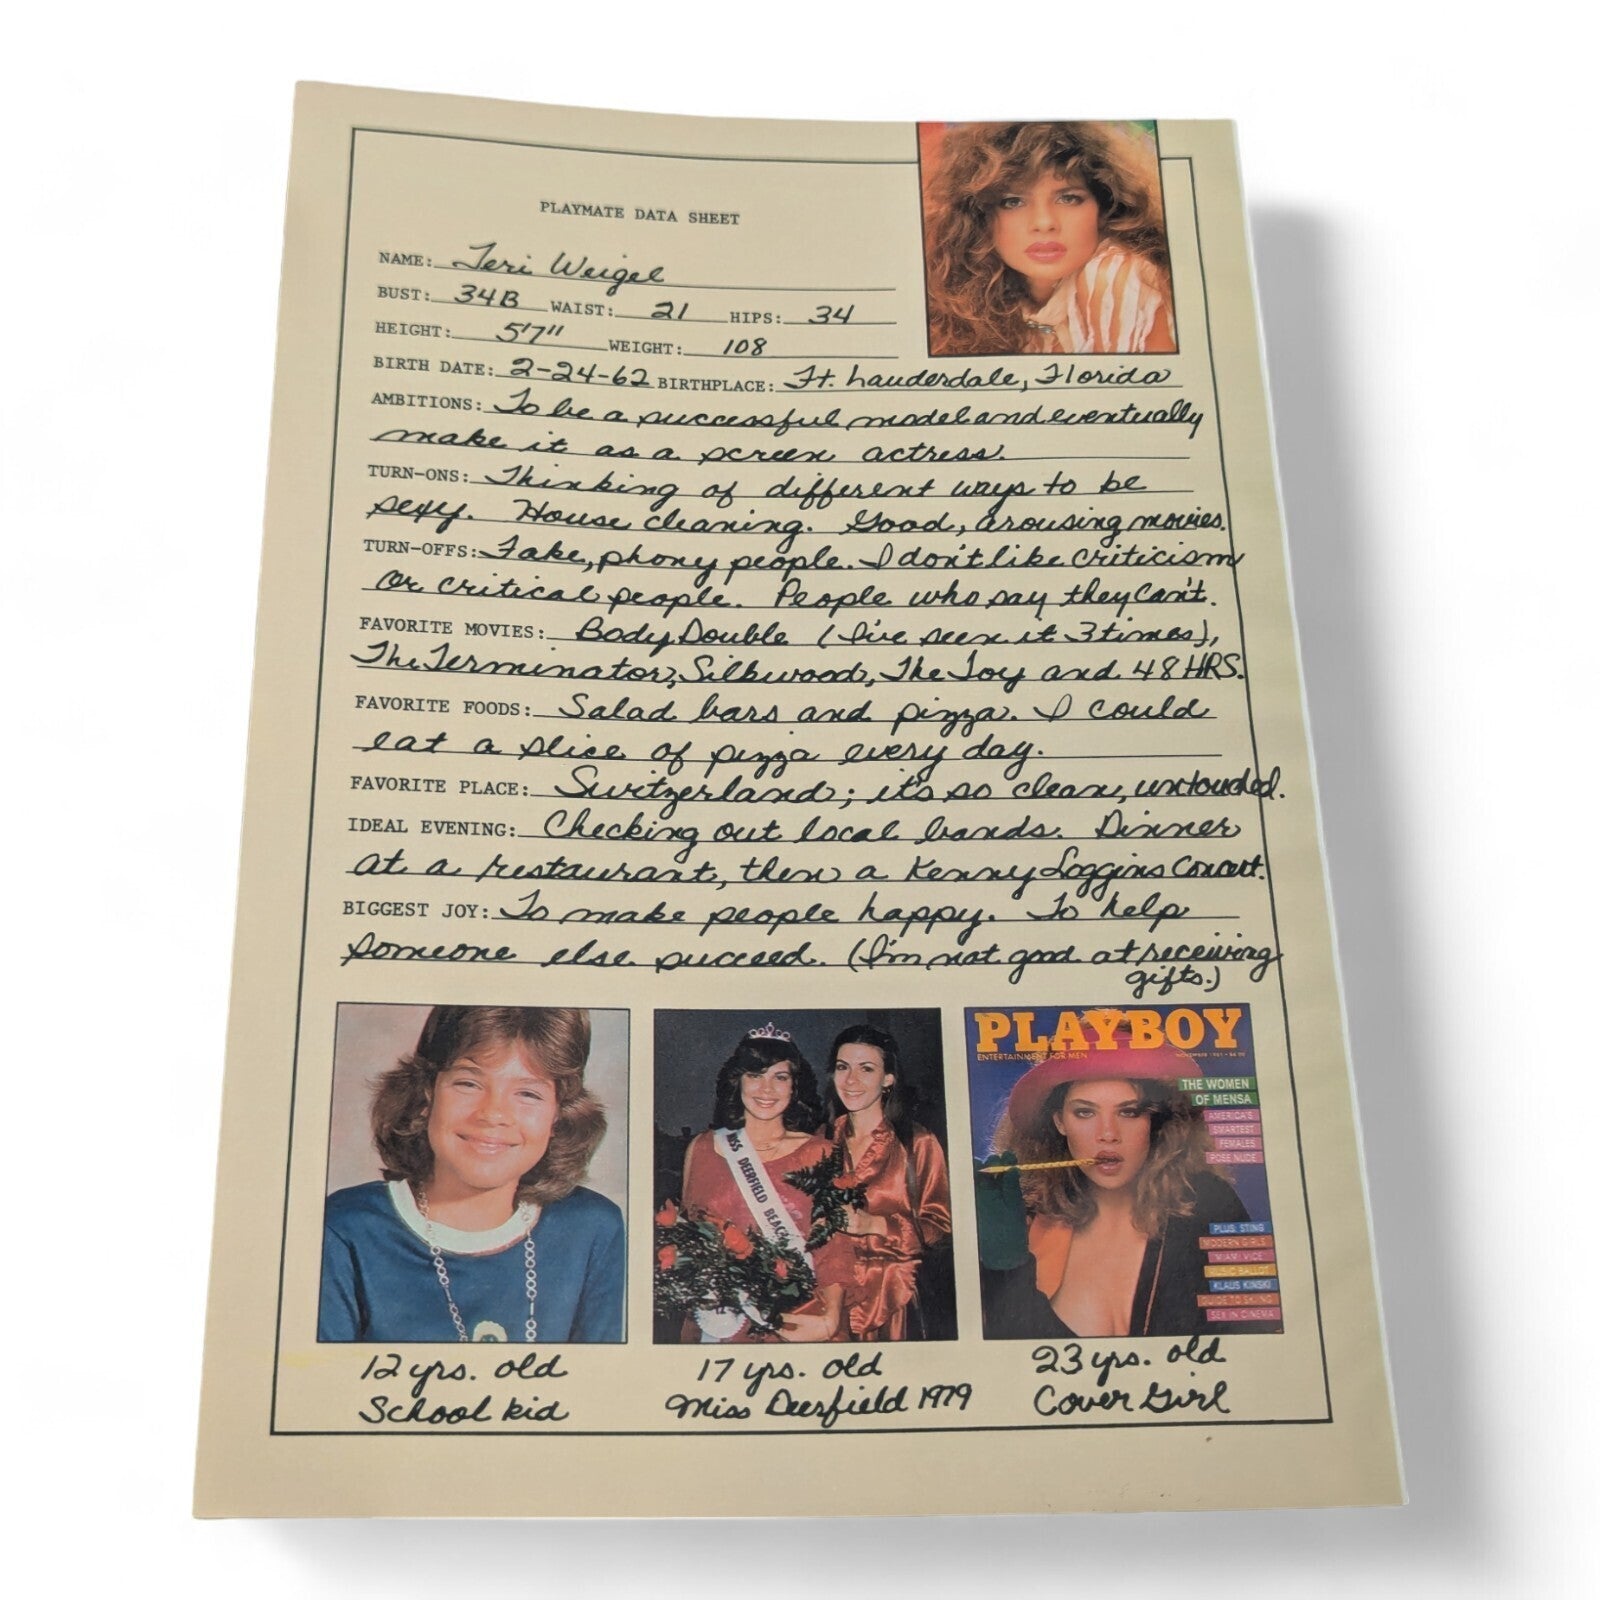 PLAYMATE DATA SHEET
NAME: Teri Weigel
BUST: 34B WAIST: 21 HIPS: 34
HEIGHT: 5'7" WEIGHT: 108
BIRTH DATE: 2-24-62 BIRTHPLACE: Ft. Lauderdale, Florida
AMBITIONS: To be a successful model and eventually
make it as a screen actress.
TURN-ONS: Thinking of different ways to be
sexy. House cleaning. Good, arousing movies.
TURN-OFFS: Fake, phony people. I don't like criticism
or critical people. People who say they can't.
FAVORITE MOVIES: Body Double (I've seen it 3 times),
The Terminator, Silkwood, The Toy and 48 HRS.
FAVORITE FOODS: Salad bars and pizza. I could
eat a slice of pizza every day.
FAVORITE PLACE: Switzerland; it's so clean, untouched.
IDEAL EVENING: Checking out local bands. Dinner
at a restaurant, then a Kenny Loggins concert.
BIGGEST JOY: To make people happy. To help
someone else succeed. (I'm not good at receiving
gifts.)
MISS DEERFIELD BEACH
PLAYBOY
ENTERTAINMENT FOR MEN
THE WOMEN
OF MENSA
AMERICA'S
SMARTEST
FEMALES
POSE NUDE
PLUS: STING
MODERN GIRLS
"MIAMI VICE"
MUSIC BALLOT
KLAUS KINSKI
GUIDE TO SKIING
SEX IN CINEMA
12 yrs. old
School kid
17 yrs. old
Miss Deerfield 1979
23 yrs. old
Cover Girl